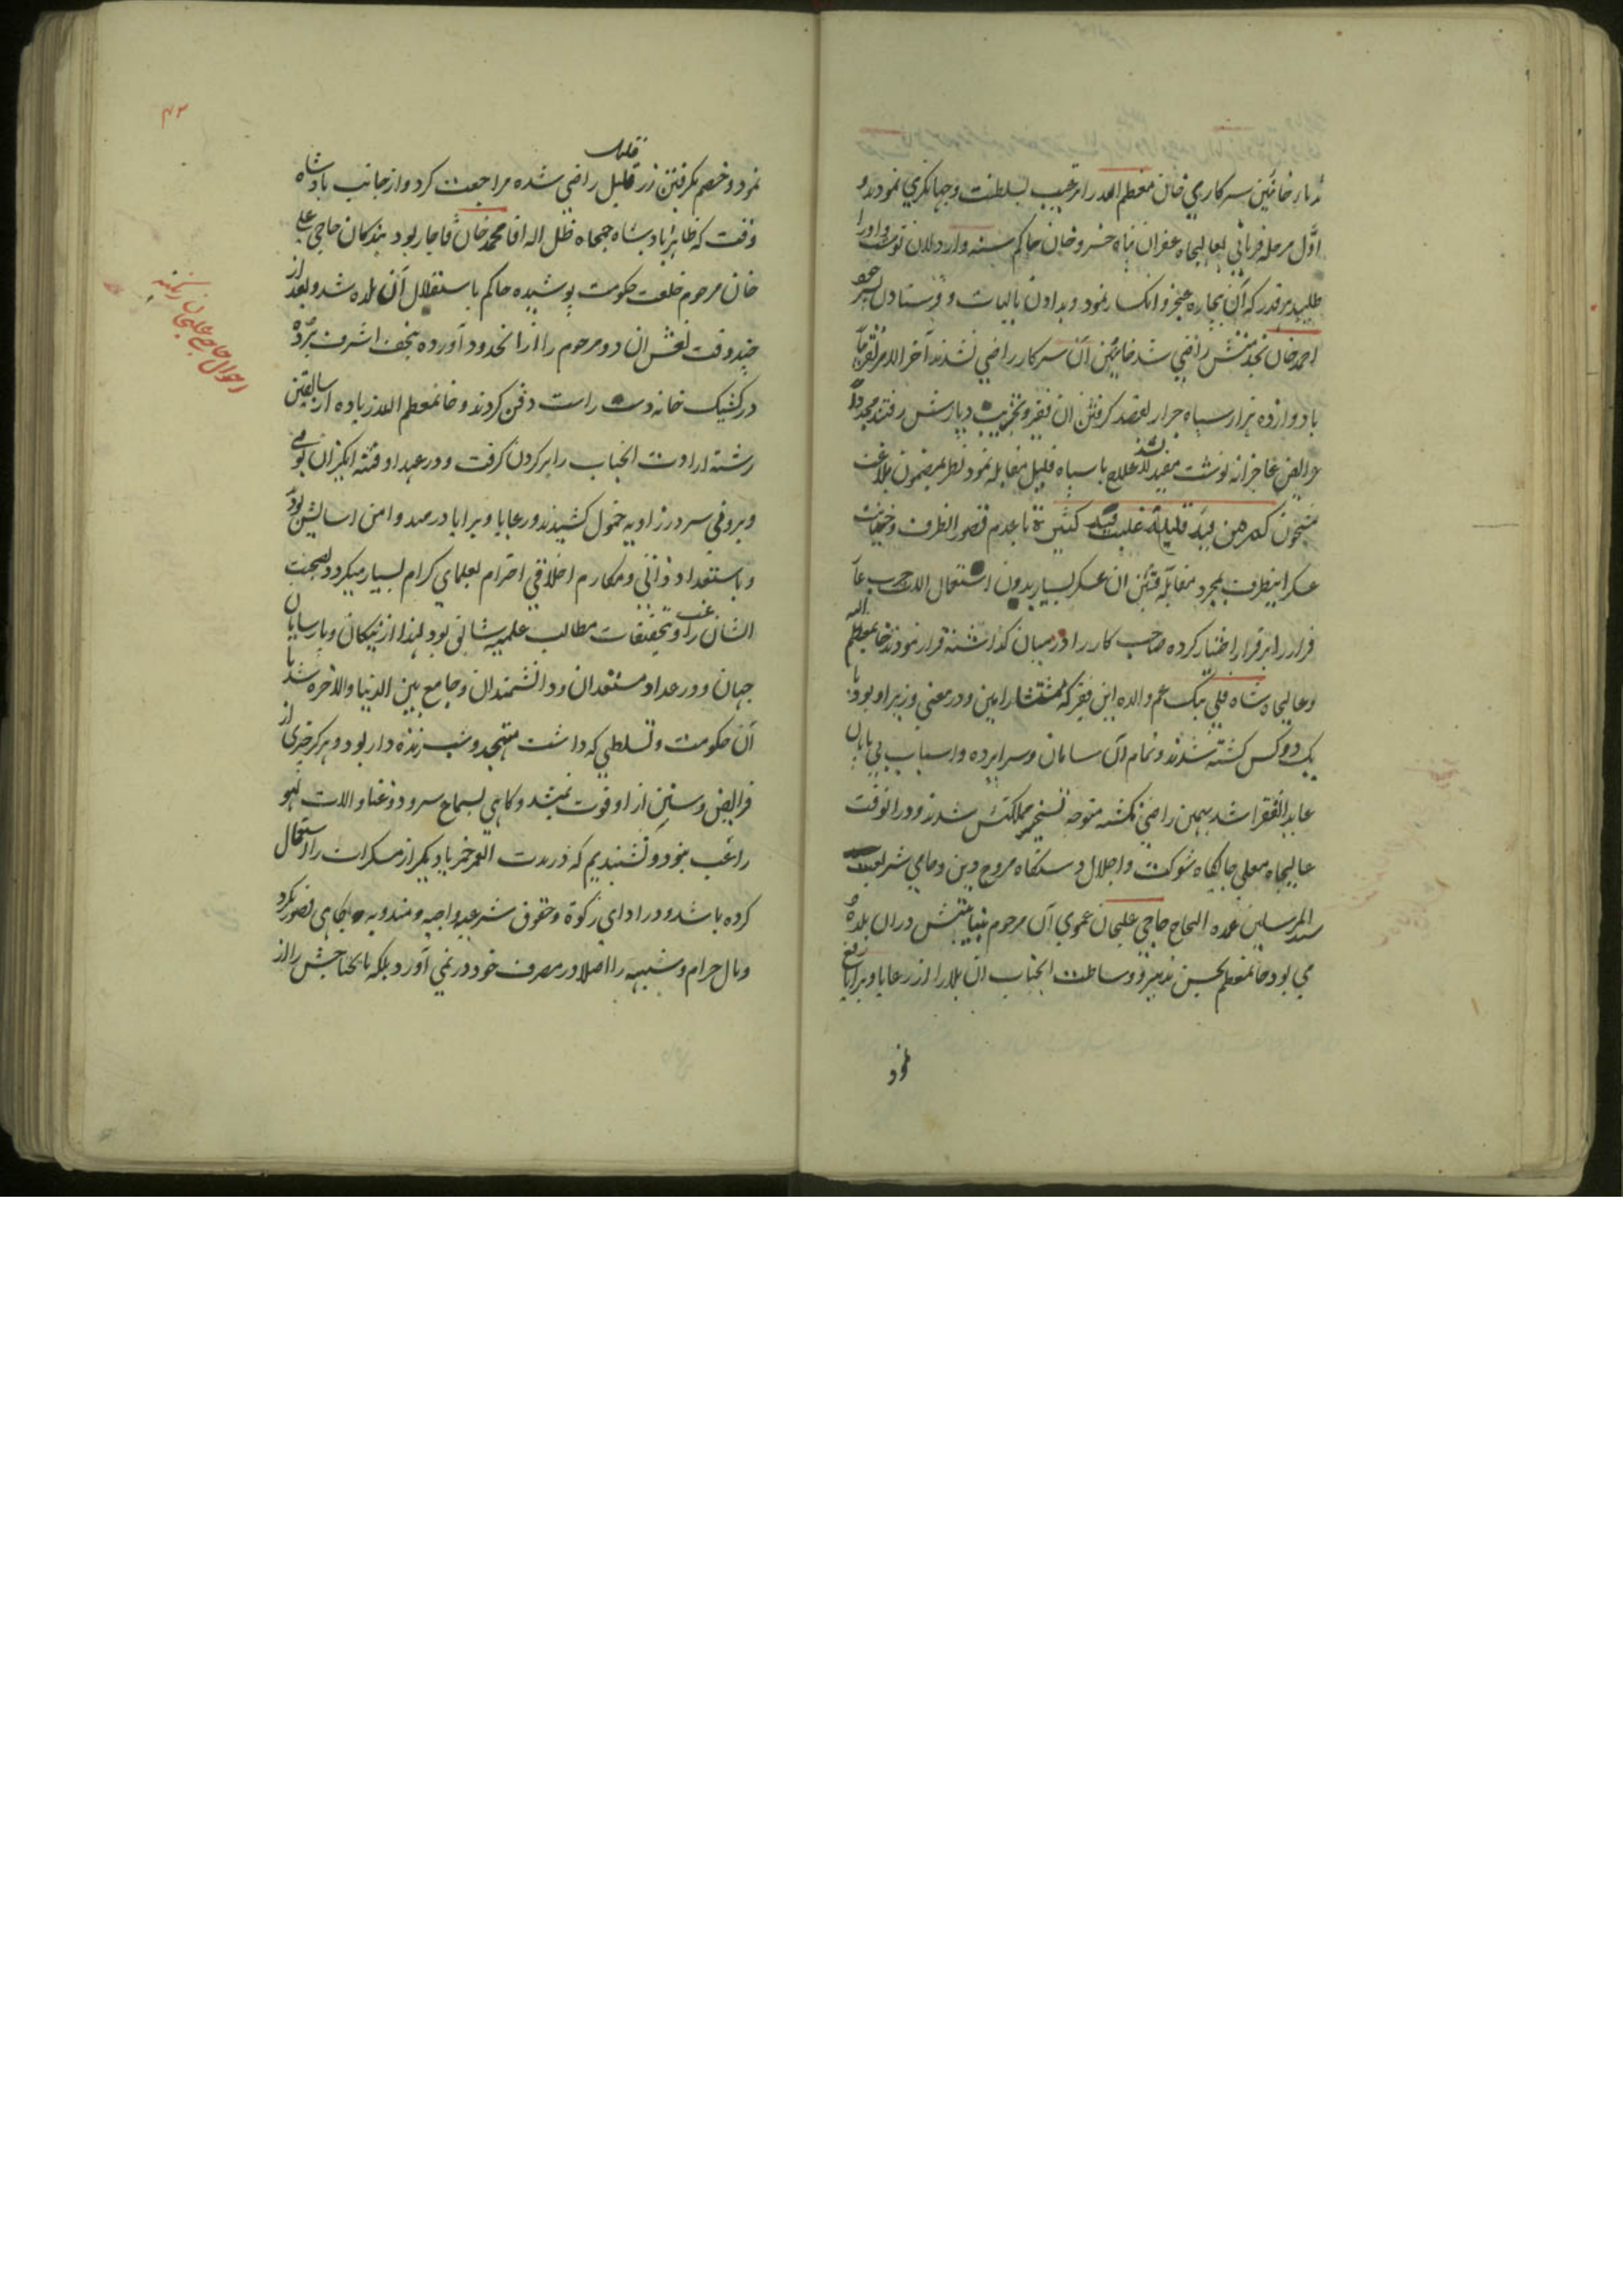 خائنین سرکاری خان معظم الله را ترغیب بسلطنت و جهانگیری نمودند و
اول مرحله فرمانی بعالیجاه غفران پناه خسرو خان حاکم سنه و اردلان نوشت و او را
طلبید هر قدر که آن بیچاره عجز و انکسار نمود و بدادن مالیات و فرستادن پسر خود
احمد خان بخدمتش راضی شد خائنین آن سرکار راضی نشدند آخر الامر
با دوازده هزار سپاه جرار بقصد گرفتن آن فقیر و تخریب دیارش رفتند مجددا
عرایض عاجزانه نوشت مفید نشد لاعلاج با سپاه قلیل مقابله نمود نظر بمضمون بلاغت
مشحون کم من فئة قلیلة غلبت فئة کثیرة با عدم قصور الطرف و خیانت
عسکر اینطرف بمجرد مقابله فئتین آن عسکر بسیار بدون استعمال آلات حرب
فرار را بر قرار اختیار کرده صاحب کار را در میان گذاشته فرار نمودند خانمعظم الله
و عالیجاه شاه قلی بیک عم والده این فقیر که مستشار امین و در معنی وزیر او بود با
یک دو کس کشته شدند و تمام آن سامان و سراپرده و اسباب بی پایان
عاید الفقرا شد بهمین راضی نگشته متوجه تسخیر مملکتش شدند و در آنوقت
عالیجاه معلی جایگاه شوکت و اجلال دستگاه مروج دین و حامی شریعت
سید المرسلین عمده الحاج حاجی علیخان عموی آن مرحوم بنیابتش در آن بلده
می بود خانمعظم بحسن تدبیر و وساطت آنجناب آن بلا را از رعایا و برایا رفع
نمود
۴۲
نمود و خصم بگرفتن زر قلیل قلیل راضی شده مراجعت کرد و از جانب پادشاه
وقت که ظاهرا پادشاه جمجاه ظل اله اقا محمد خان قاجار بود بندگان حاجی علی
خان مرحوم خلعت حکومت پوشیده حاکم باستقلال آن بلده شد و بعد از
چند وقت نعش آن دو مرحوم را از آنحدود آورده بنجف اشرف برده
در کشیک خانه دست راست دفن کردند و خانمعظم الله زیاده از سابقین
رشته ارادت آنجناب را بر گردن گرفت و در عهد او فتنه انگیزان بومی
و بیرونی سر در زاویه خمول کشیدند و رعایا و برایا در مهد و امن اسایش بود
و باستعداد ذاتی و مکارم اخلاقی احترام بعلمای کرام بسیار میکرد و بصحبت
ایشان راغب و تحقیقات مطالب علمیه شانی بود لهذا از نیکان و پارسایان
جهان و در عداد مستعدان و دانشمندان و جامع بین الدنیا و الاخره شد با
آن حکومت و تسلطی که داشت متهجد و شب زنده دار بود و هرگز چیزی از
فرایض و سنن از او فوت نمیشد و گاهی بسماع سرود و غنا و الات لهو
راغب نبود و نشنیدیم که در مدت العمر خمر یا دیگر از مسکرات را استعمال
کرده باشد و در ادای زکوة و حقوق شرعیه واجبه و مندوبه گاهی قصور نکرد
و مال حرام و شبهه را اصلا در مصرف خود در نمی آورد بلکه مایحتاجش را از
احوال حاجی علیخان زنگنه